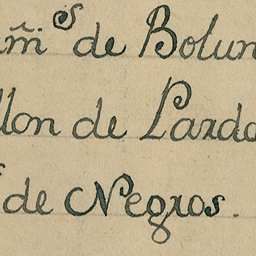 am̃.s de Bolun
llon de Pardo
s de Negros.